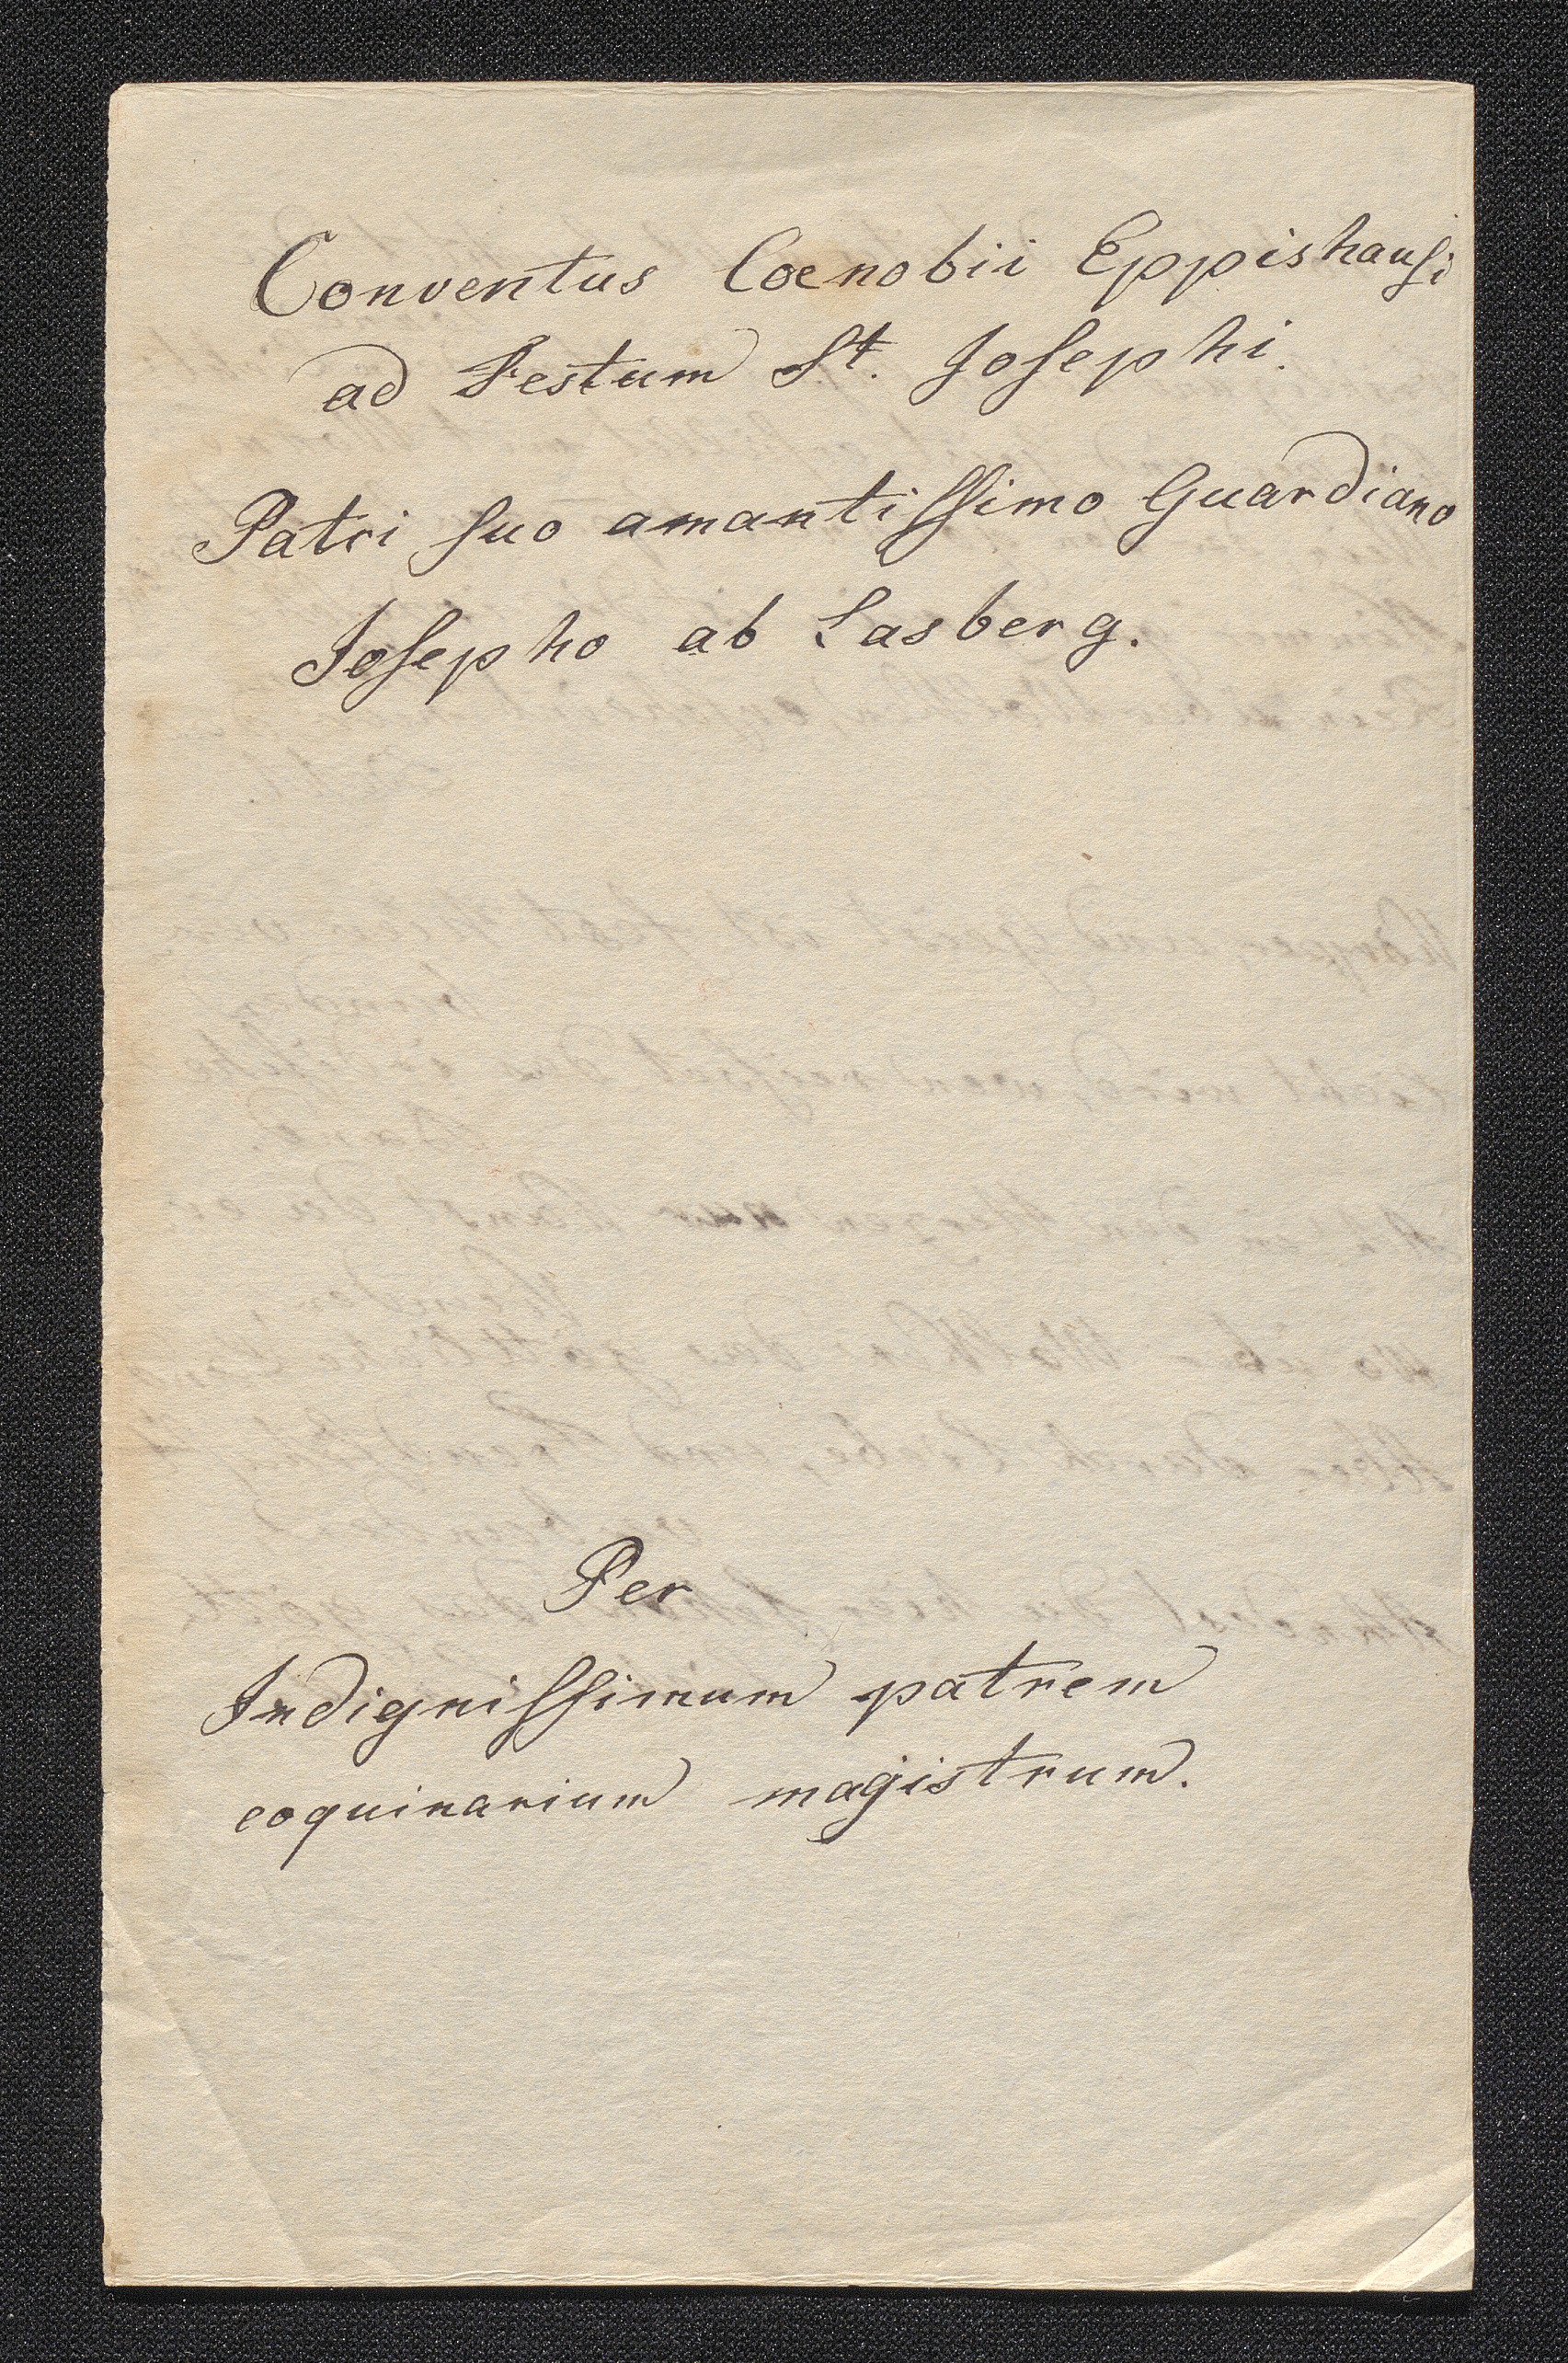 Conventus Coenobii Eppishausi
ad Festum St. Josephi.
Patri suo amantissimo Guardiano
Josepho ab Lasberg.
Per
Indignissimum patrem
coquinarium magistrum.